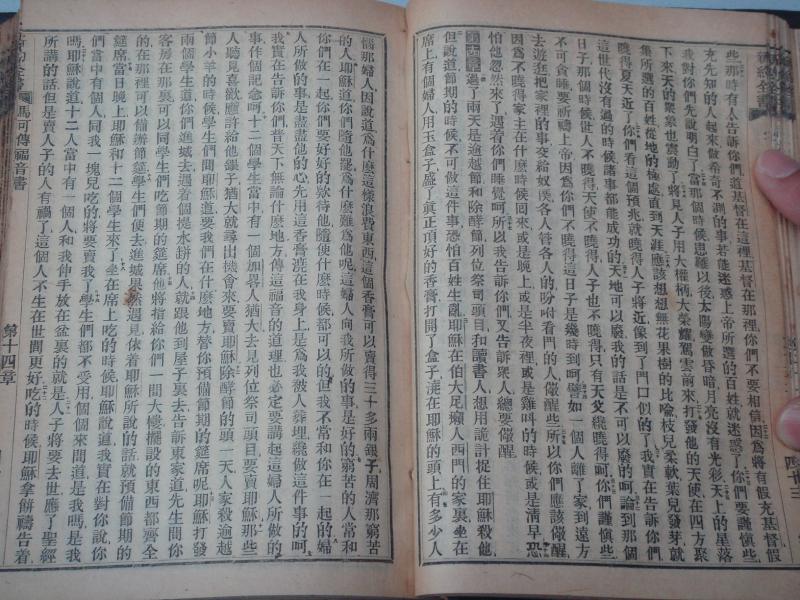 些那時有人告訴你們道基督在這裡基督在那裡你們不要相信因爲將有假充基督假
充先知的人起來做希奇不測的事若能迷惑上帝所選的百姓就迷惑了你們要謹愼些
我對你們先說明白了當那個時候患難以後太陽變做昏暗月亮沒有光彩天上的星落
下來天的衆象也震動了將見人子用大權柄大榮耀駕雲前來打發他的天使在四方聚
集所選的百姓從地的極處直到天涯應該想想無花果樹的比喻枝兒柔軟葉兒發芽就
曉得夏天近了你們看這個預兆就曉得人子將近像到了門口似的了我實在告訴你們
這世代沒有過的時候諸事都能成功的天地可以廢我的話是不可以廢的呵論到那個
日子那個時候世人不曉得天使不曉得人子也不曉得只有天父纔曉得呵你們謹愼些
不可貪睡要祈禱上帝因爲你們不曉得這日子是幾時到呵譬如一個人離了家到遠方
去遊逛把家裡的事交給奴僕各人管各人的吩咐看門的人儆醒些所以你們應該儆醒
因爲不曉得家主在什麼時候回來或是晚上或是半夜裡或是雞叫的時候或是淸早恐
怕他忽然來了遇着你們睡覺呵所以我告訴你們又告訴衆人總要儆醒
過了兩天是逾越節和除酵節列位祭司頭目和讀書人想用詭計捉住耶穌殺他
但說道節期的時候不可做這件事恐怕百姓生亂耶穌在伯大尼癩人西門的家裏坐在
席上有個婦人用玉盒子盛了眞正頂好的香膏打開了盒子澆在耶穌的頭上有多少人
惱那婦人因說道爲什麼這樣浪費東西這個香膏可以賣得三十多兩銀子周濟那窮苦
的人耶穌道你們隨他罷爲什麼難爲他呢這婦人向我所做的事是好的窮苦的人常和
你們在一起的你們要好好的欵待他隨便什麼時候都可以的但我不常和你在一起的婦
人所做的事是盡他的心先用這香膏澆在我身上是爲我被人葬埋纔做這件事的呵
我實在告訴你們普天下無論什麼地方傳這福音的道理也必定要講起這婦人所做的
事作個記念呵十二個學生當中有一個加畧人猶大去見列位祭司頭目要賣耶穌那些
人聽見喜歡應許給他銀子猶大就尋出機會來要賣耶穌除酵節的頭一天人家殺逾越
節小羊的時候學生們問耶穌道要我們在什麼地方替你預備節期的筵席呢耶穌打發
兩個學生道你們進城去遇着個提水缾的人就跟他到屋子裏去告訴東家道先生問你
客房在那裏可以同學生們吃節期的筵席他將指給你們一間大樓擺設的東西都齊全
的在那裡可以備辦節筵學生們便去進城果然遇見依着耶穌所說的話就預備節期的
筵席當日晚上耶穌和十二個學生來了坐在席上吃的時候耶穌說道我實在對你說你
們當中有個人同我一塊兒吃的將要賣我了學生們都不受用個個來問道是我嗎是我
嗎耶穌說道十二人當中有一個人和我伸手放在盆裏的就是人子將要去世應了聖經
所講的話但是賣人子的人有禍了這個人不生在世間更好吃的時候耶穌拿餠禱告着
新約全書
馬可傳福音書
第十四章